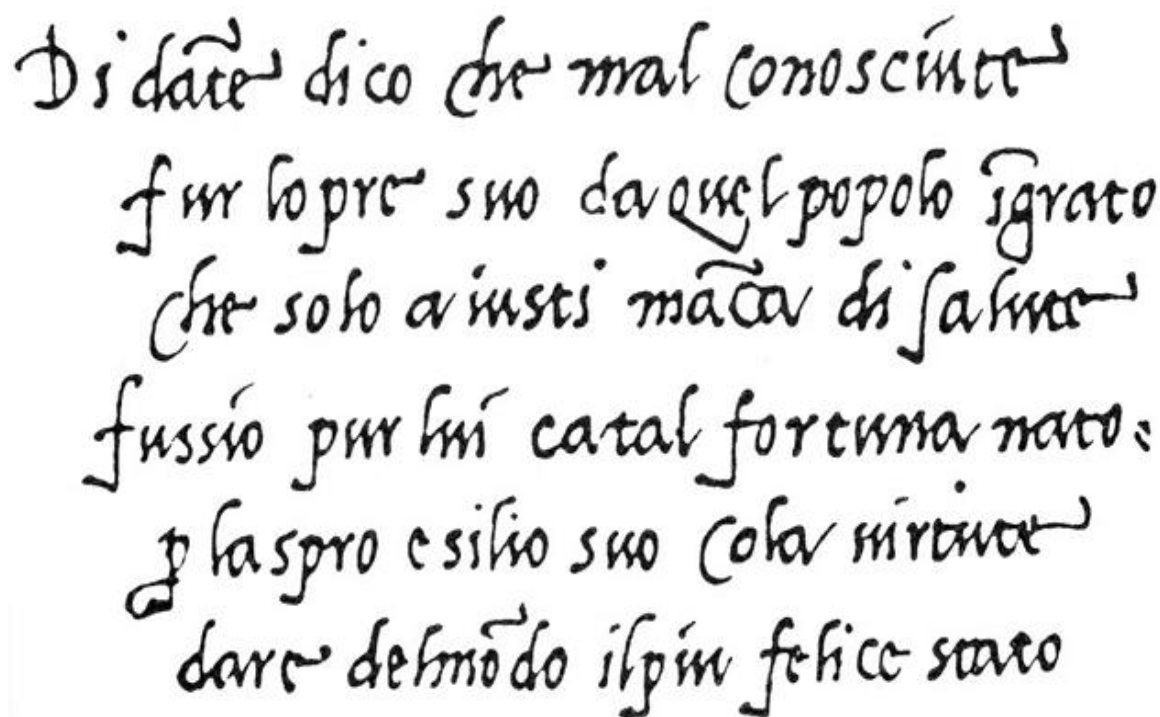 Di dāte dico che mal conosciute
fur lopre suo da quel popolo īgrato
che solo a iusti māca di salute
fussio pur lui catal fortuna nato:
ꝑ laspro esilio suo cola uirtute
dare delmōdo ilpiu felice stato